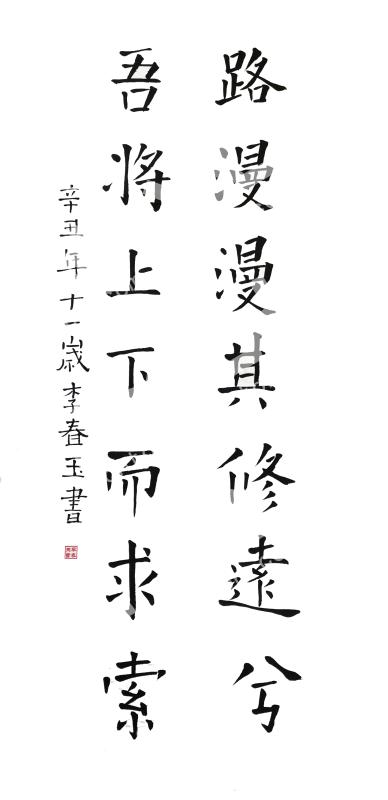 路漫漫其修遠兮
吾将上下而求索
辛丑年十一歲李春玉書